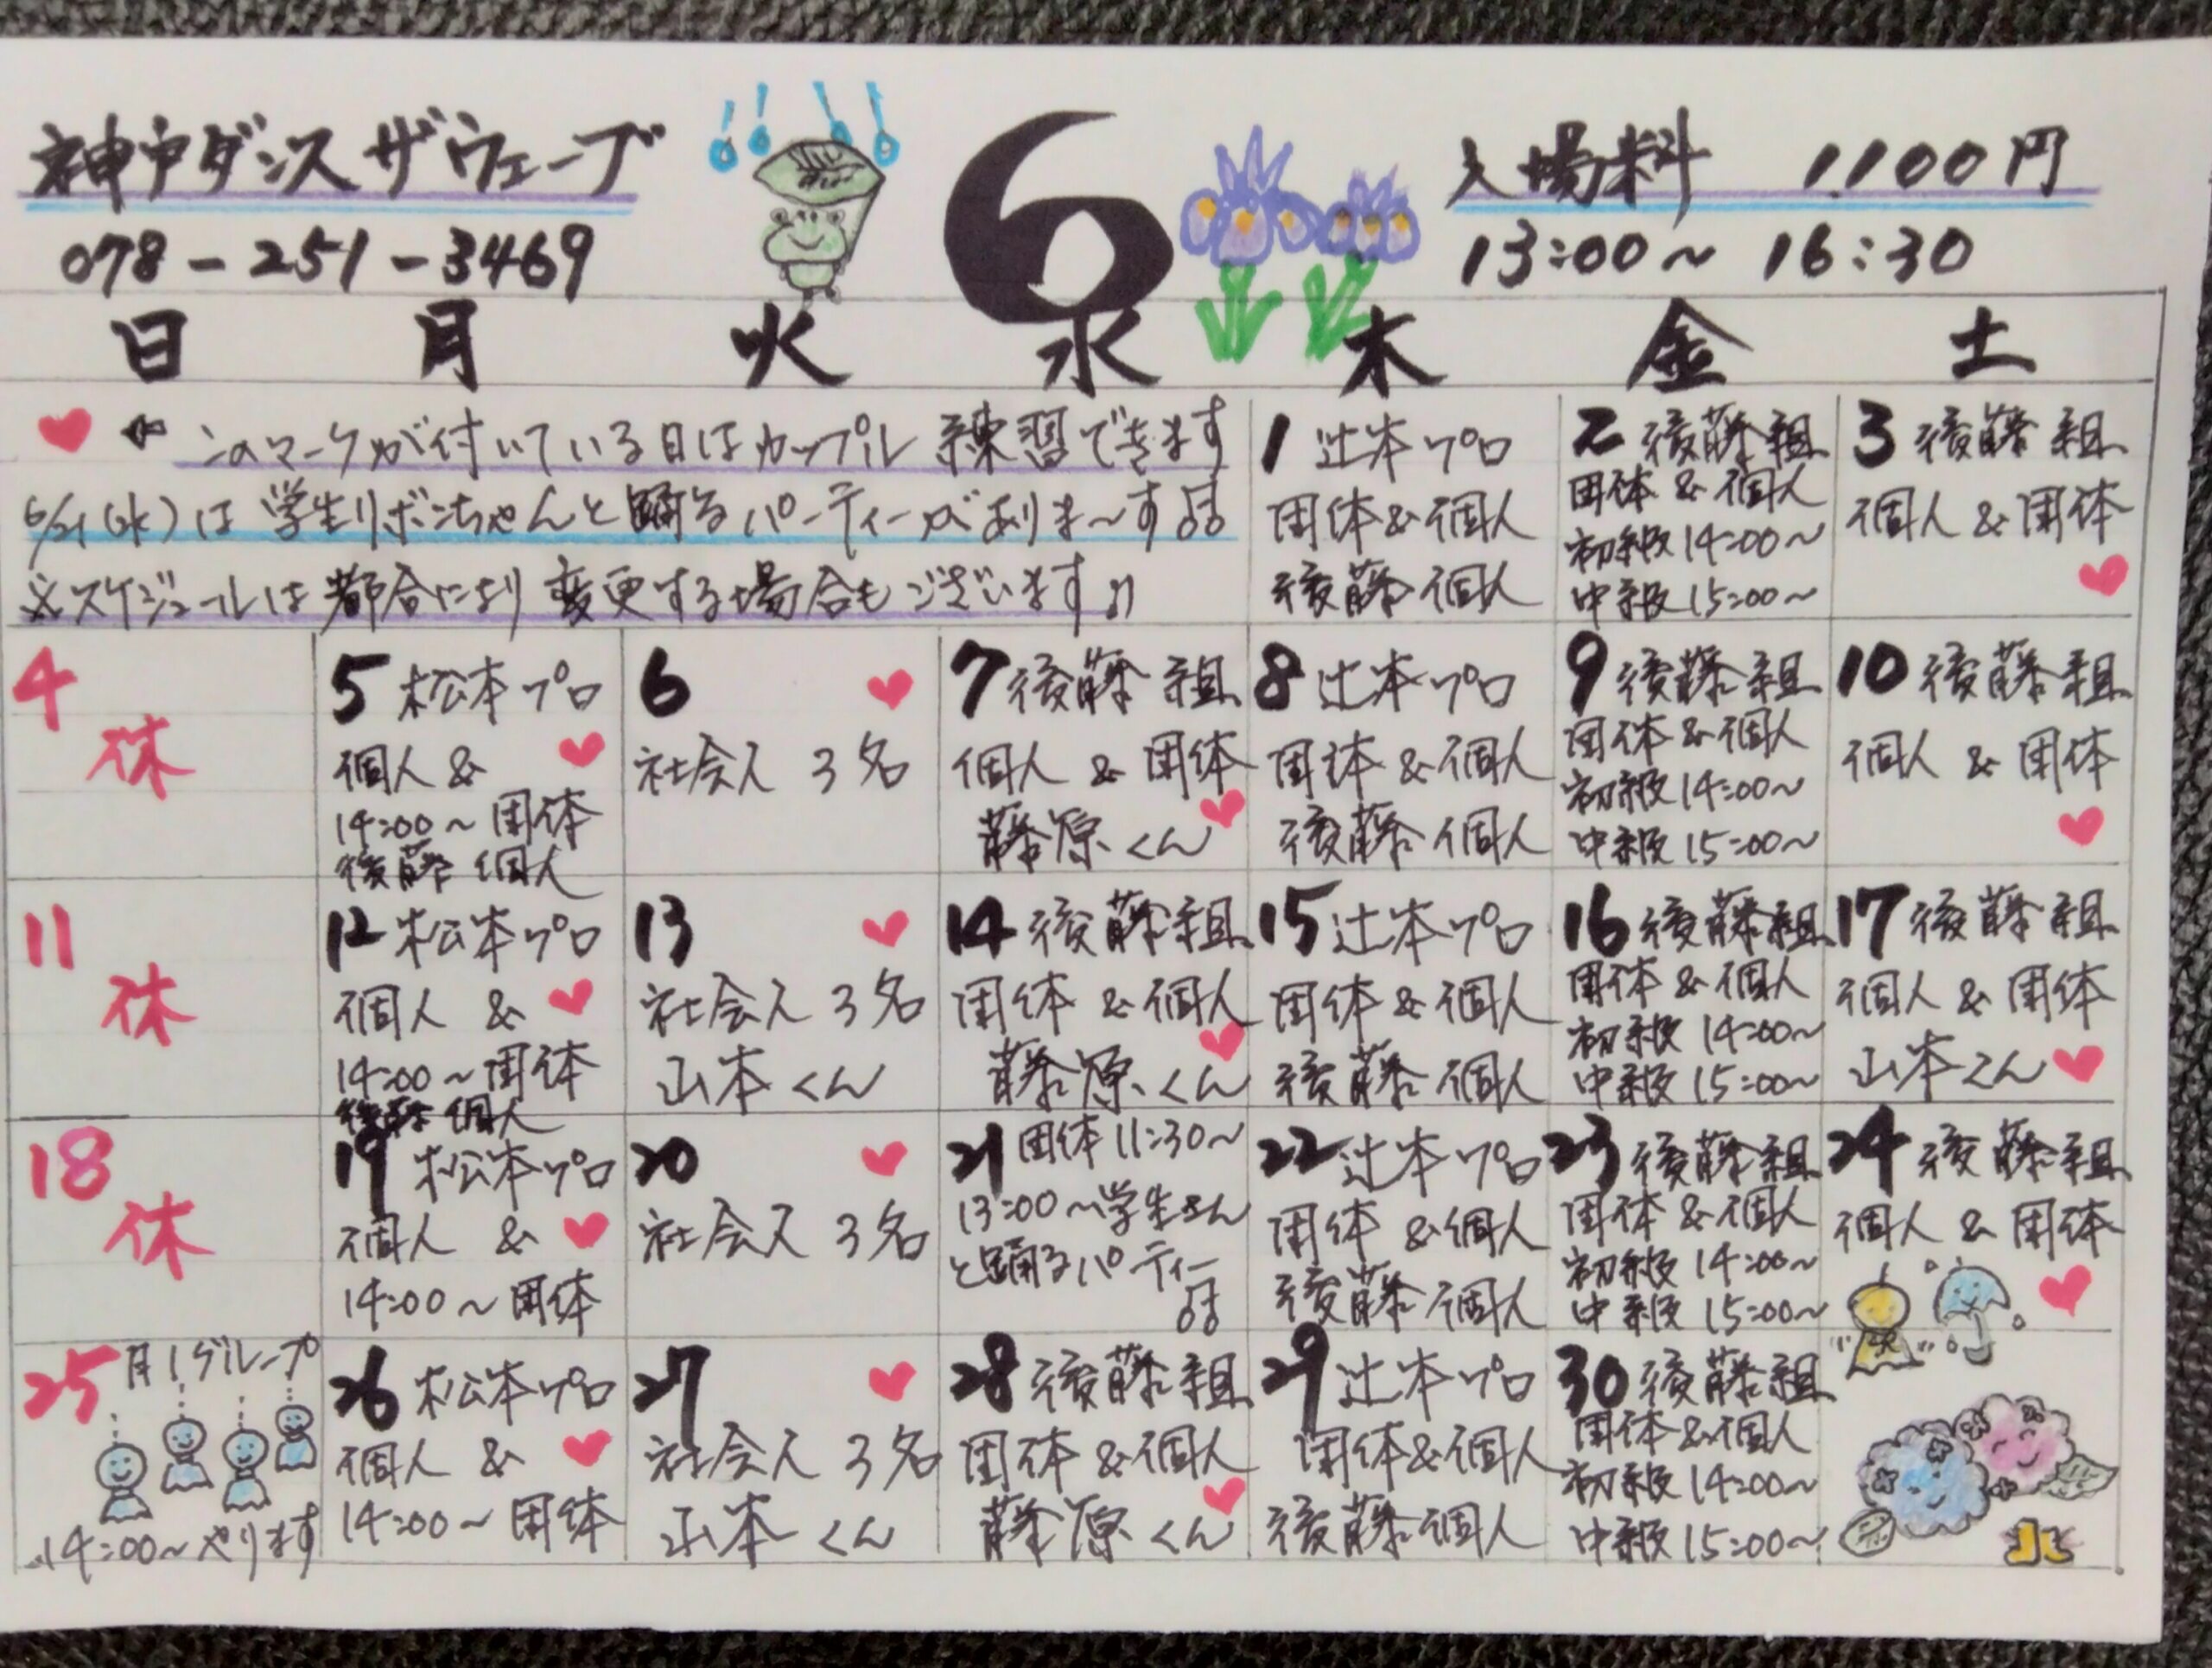 神戸ダンスザウェーブ
078-251-3469
6
入場料 1,100円
13:00～16:30
日 月 火 水 木 金 土
このマークが付いている日はカップル練習できます
6/21(水)は学生リボンちゃんと踊るパーティーがありま～す
※スケジュールは都合により変更する場合もございます
1 辻本プロ
団体&個人
後藤個人
2 後藤組
団体&個人
初級14:00～
中級15:00～
3 後藤組
個人&団体
4
休
5 松本プロ
個人&
14:00～団体
後藤個人
6
社会人3名
7 後藤組
個人&団体
藤原くん
8 辻本プロ
団体&個人
後藤個人
9 後藤組
団体&個人
初級14:00～
中級15:00～
10 後藤組
個人&団体
11
休
12 松本プロ
個人&
14:00～団体
後藤個人
13
社会人3名
山本くん
14 後藤組
団体&個人
藤原くん
15 辻本プロ
団体&個人
後藤個人
16 後藤組
団体&個人
初級14:00～
中級15:00～
17 後藤組
個人&団体
山本くん
18
休
19 松本プロ
個人&
14:00～団体
20
社会人3名
21 団体11:30～
13:00～学生さん
と踊るパーティー
22 辻本プロ
団体&個人
後藤個人
23 後藤組
団体&個人
初級14:00～
中級15:00～
24 後藤組
個人&団体
25 月1グループ
14:00～やります
26 松本プロ
個人&
14:00～団体
27
社会人3名
山本くん
28 後藤組
団体&個人
藤原くん
29 辻本プロ
団体&個人
後藤個人
30 後藤組
団体&個人
初級14:00～
中級15:00～